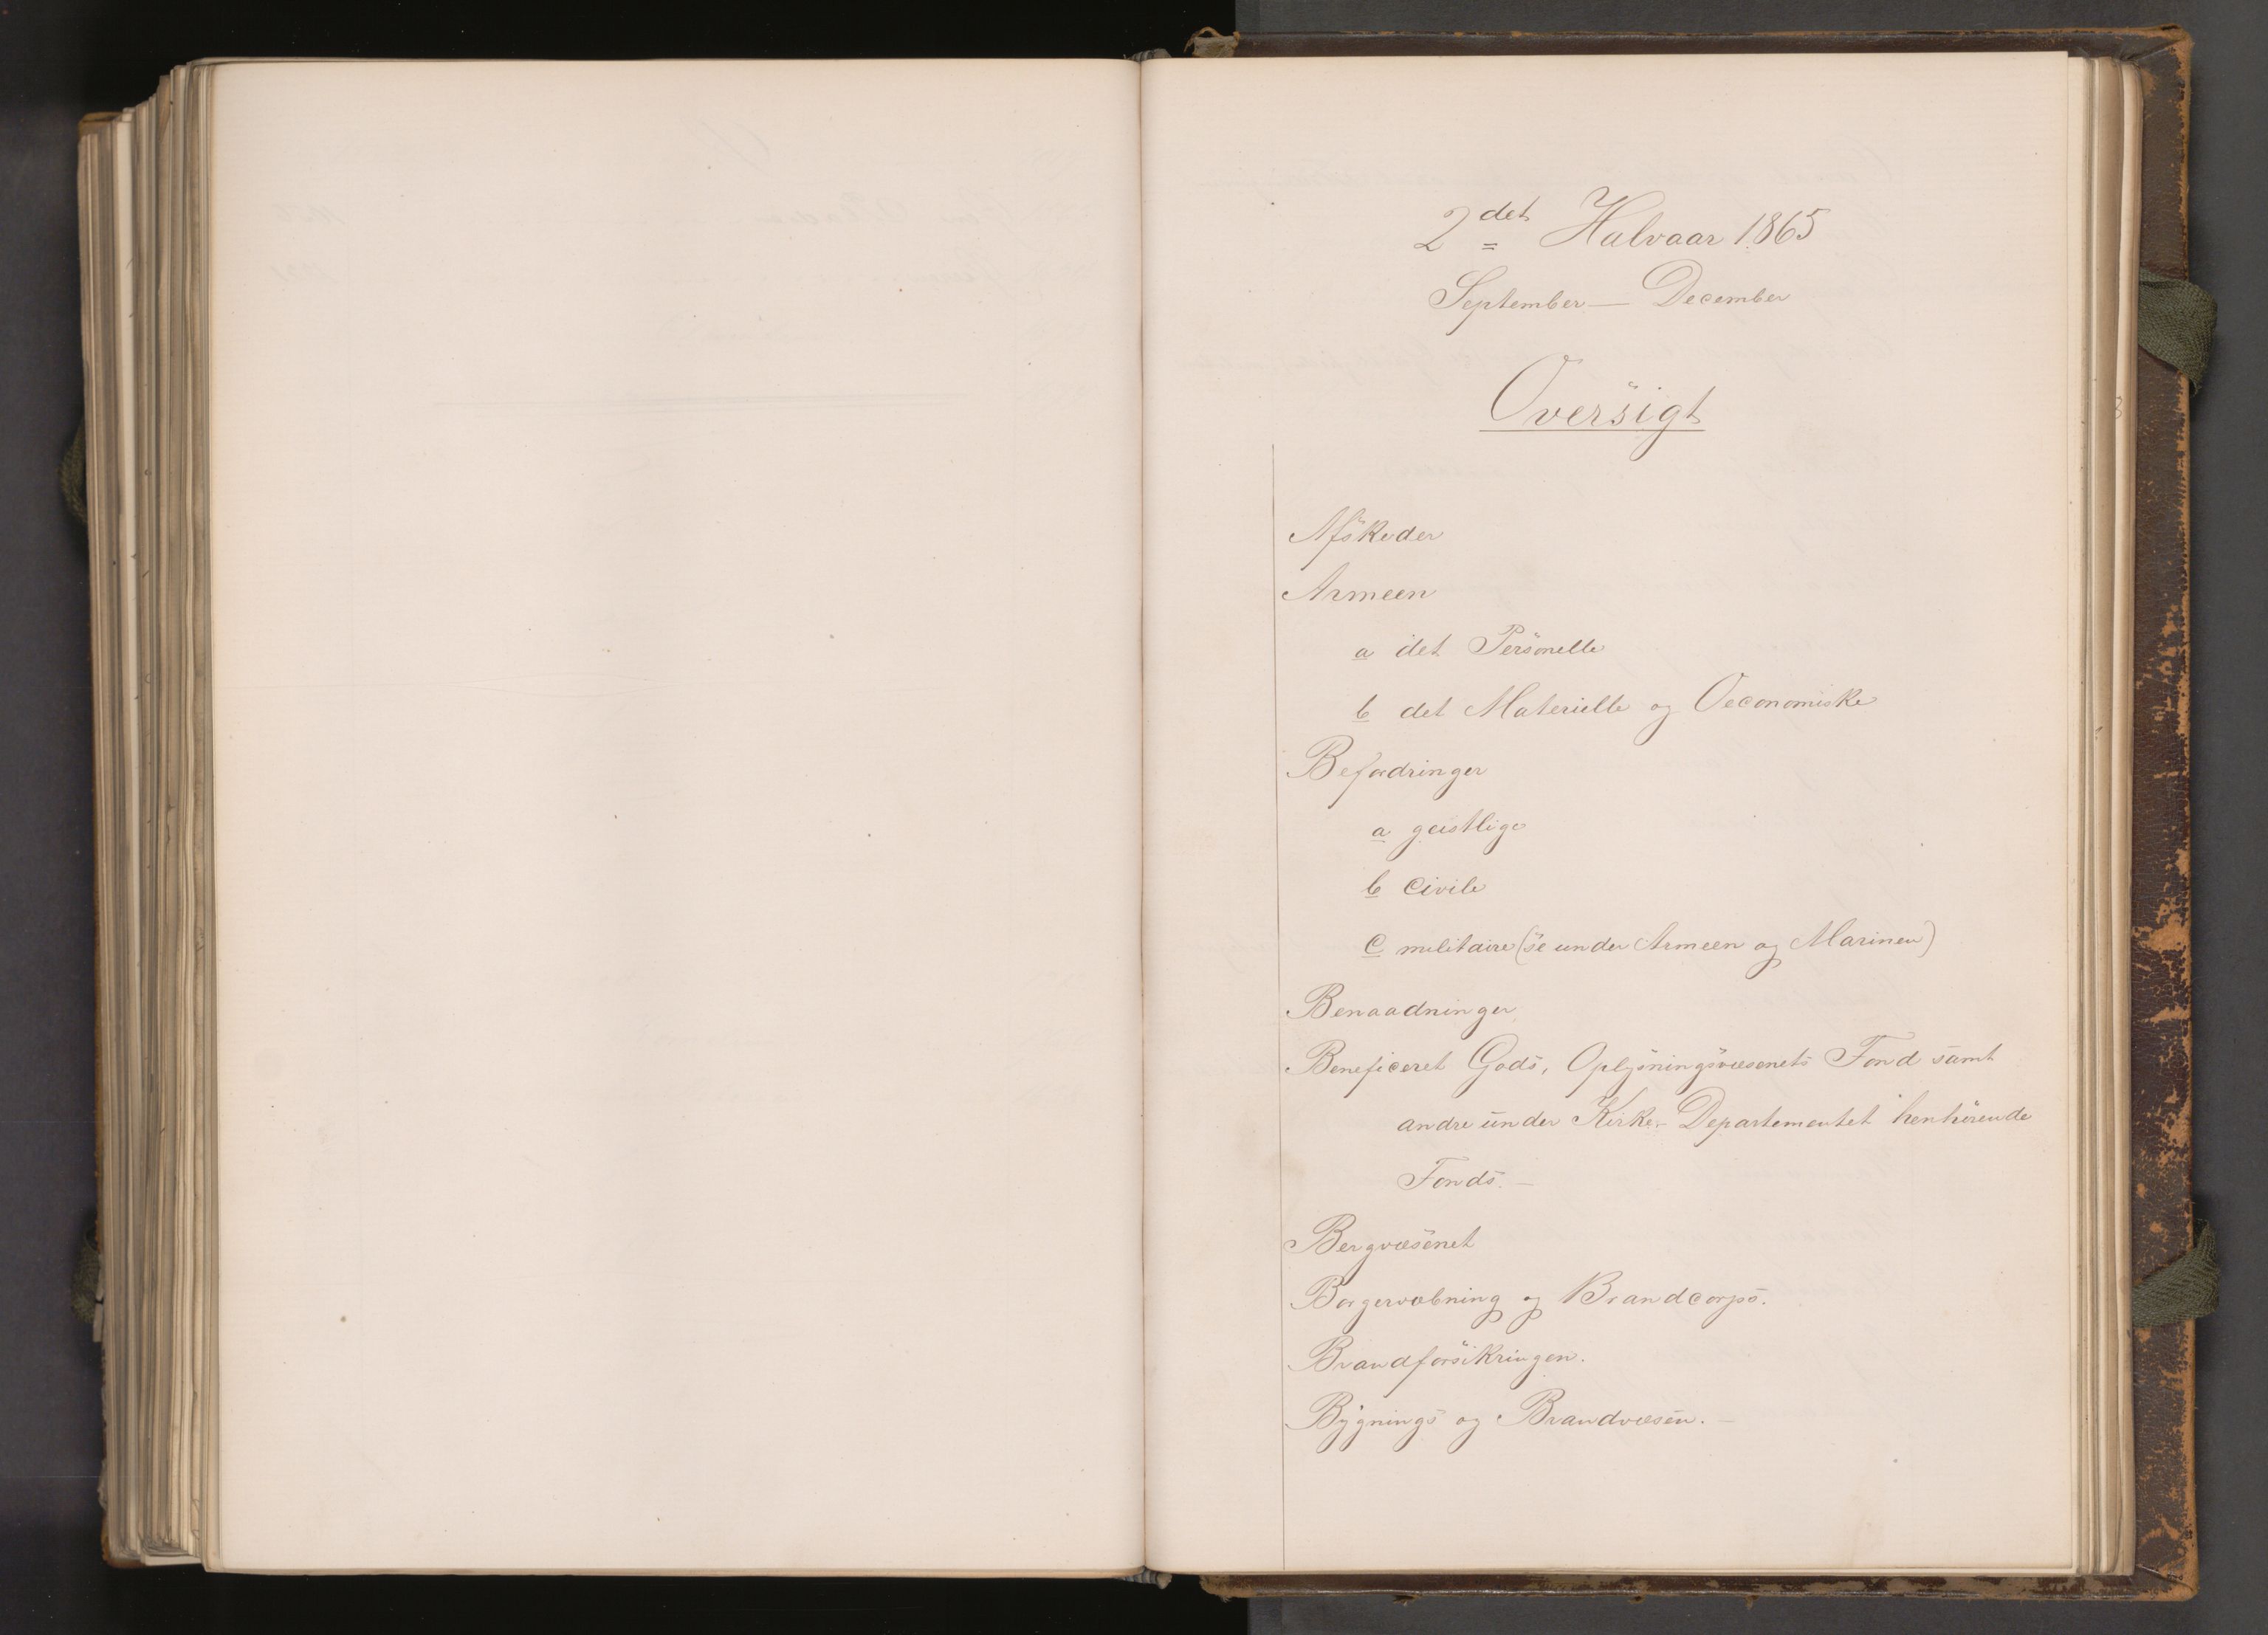 2det Halvaar 1865
September — December
Oversigt
Afskeder
Armeen
a det Personelle
b det Materielle og Oeconomiske
Befordringer
a geistlige
b civile
c militaire (se under Armeen og Marinen)
Benaadninger
Beneficeret Gods, Oplysningsvæsenets Fond samt
andre under Kirke-Departementet henhörende
Fonds. —
Bergvæsenet
Borgervæbning og Brandcorps.
Brandforsikringen.
Bygnings og Brandvæsen. —